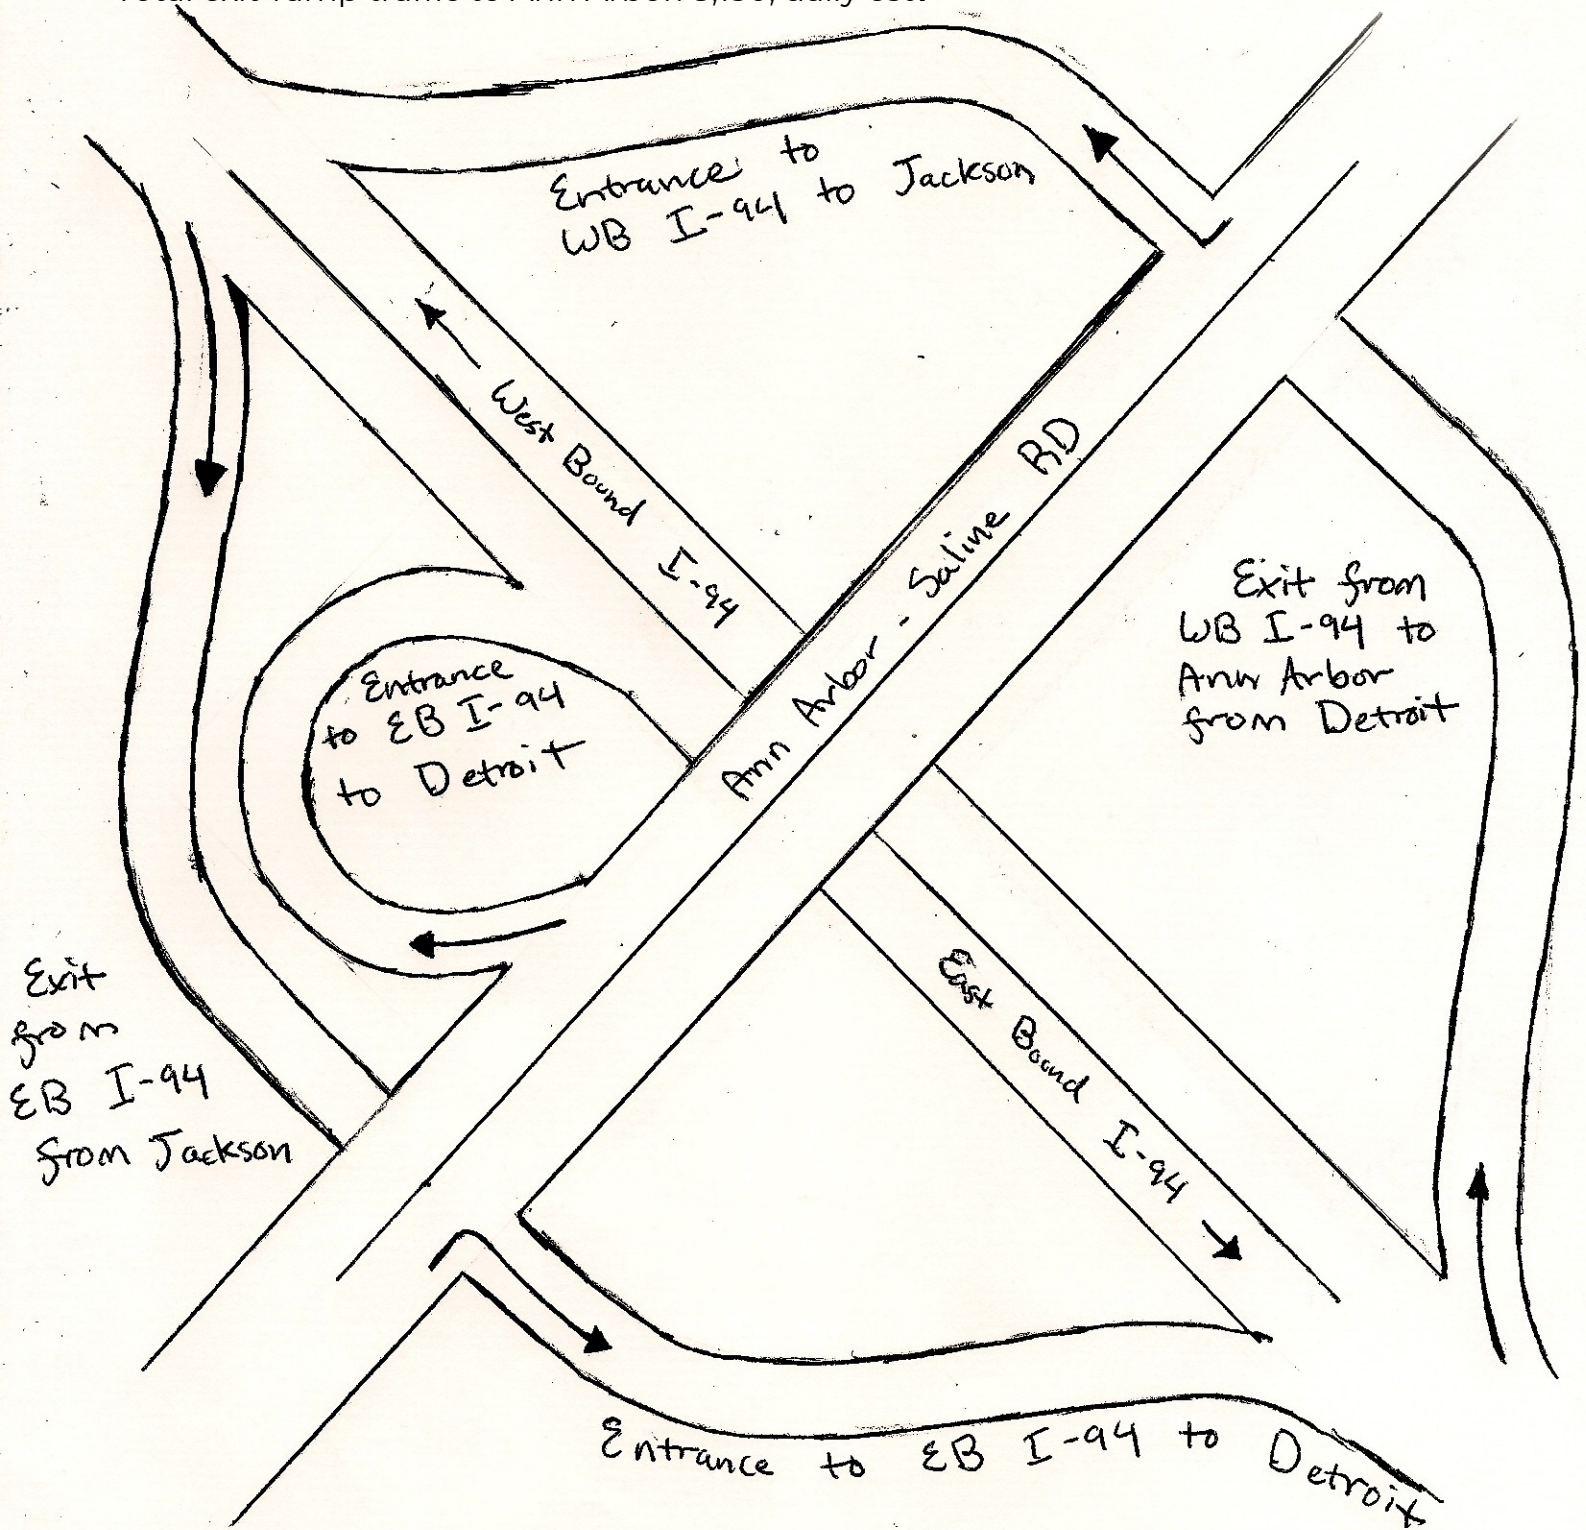 Entrance to
WB I-94 to Jackson
West Bound I-94
Ann Arbor - Saline RD
Exit from
WB I-94 to
Ann Arbor
from Detroit
Entrance
to EB I-94
to Detroit
Exit
from
EB I-94
from Jackson
East Bound I-94
Entrance to EB I-94 to Detroit